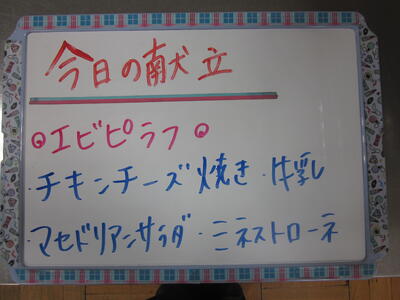 今日の献立
◎エビピラフ◎
・チキンチーズ焼き・牛乳
・マセドリアンサラダ・ミネストローネ